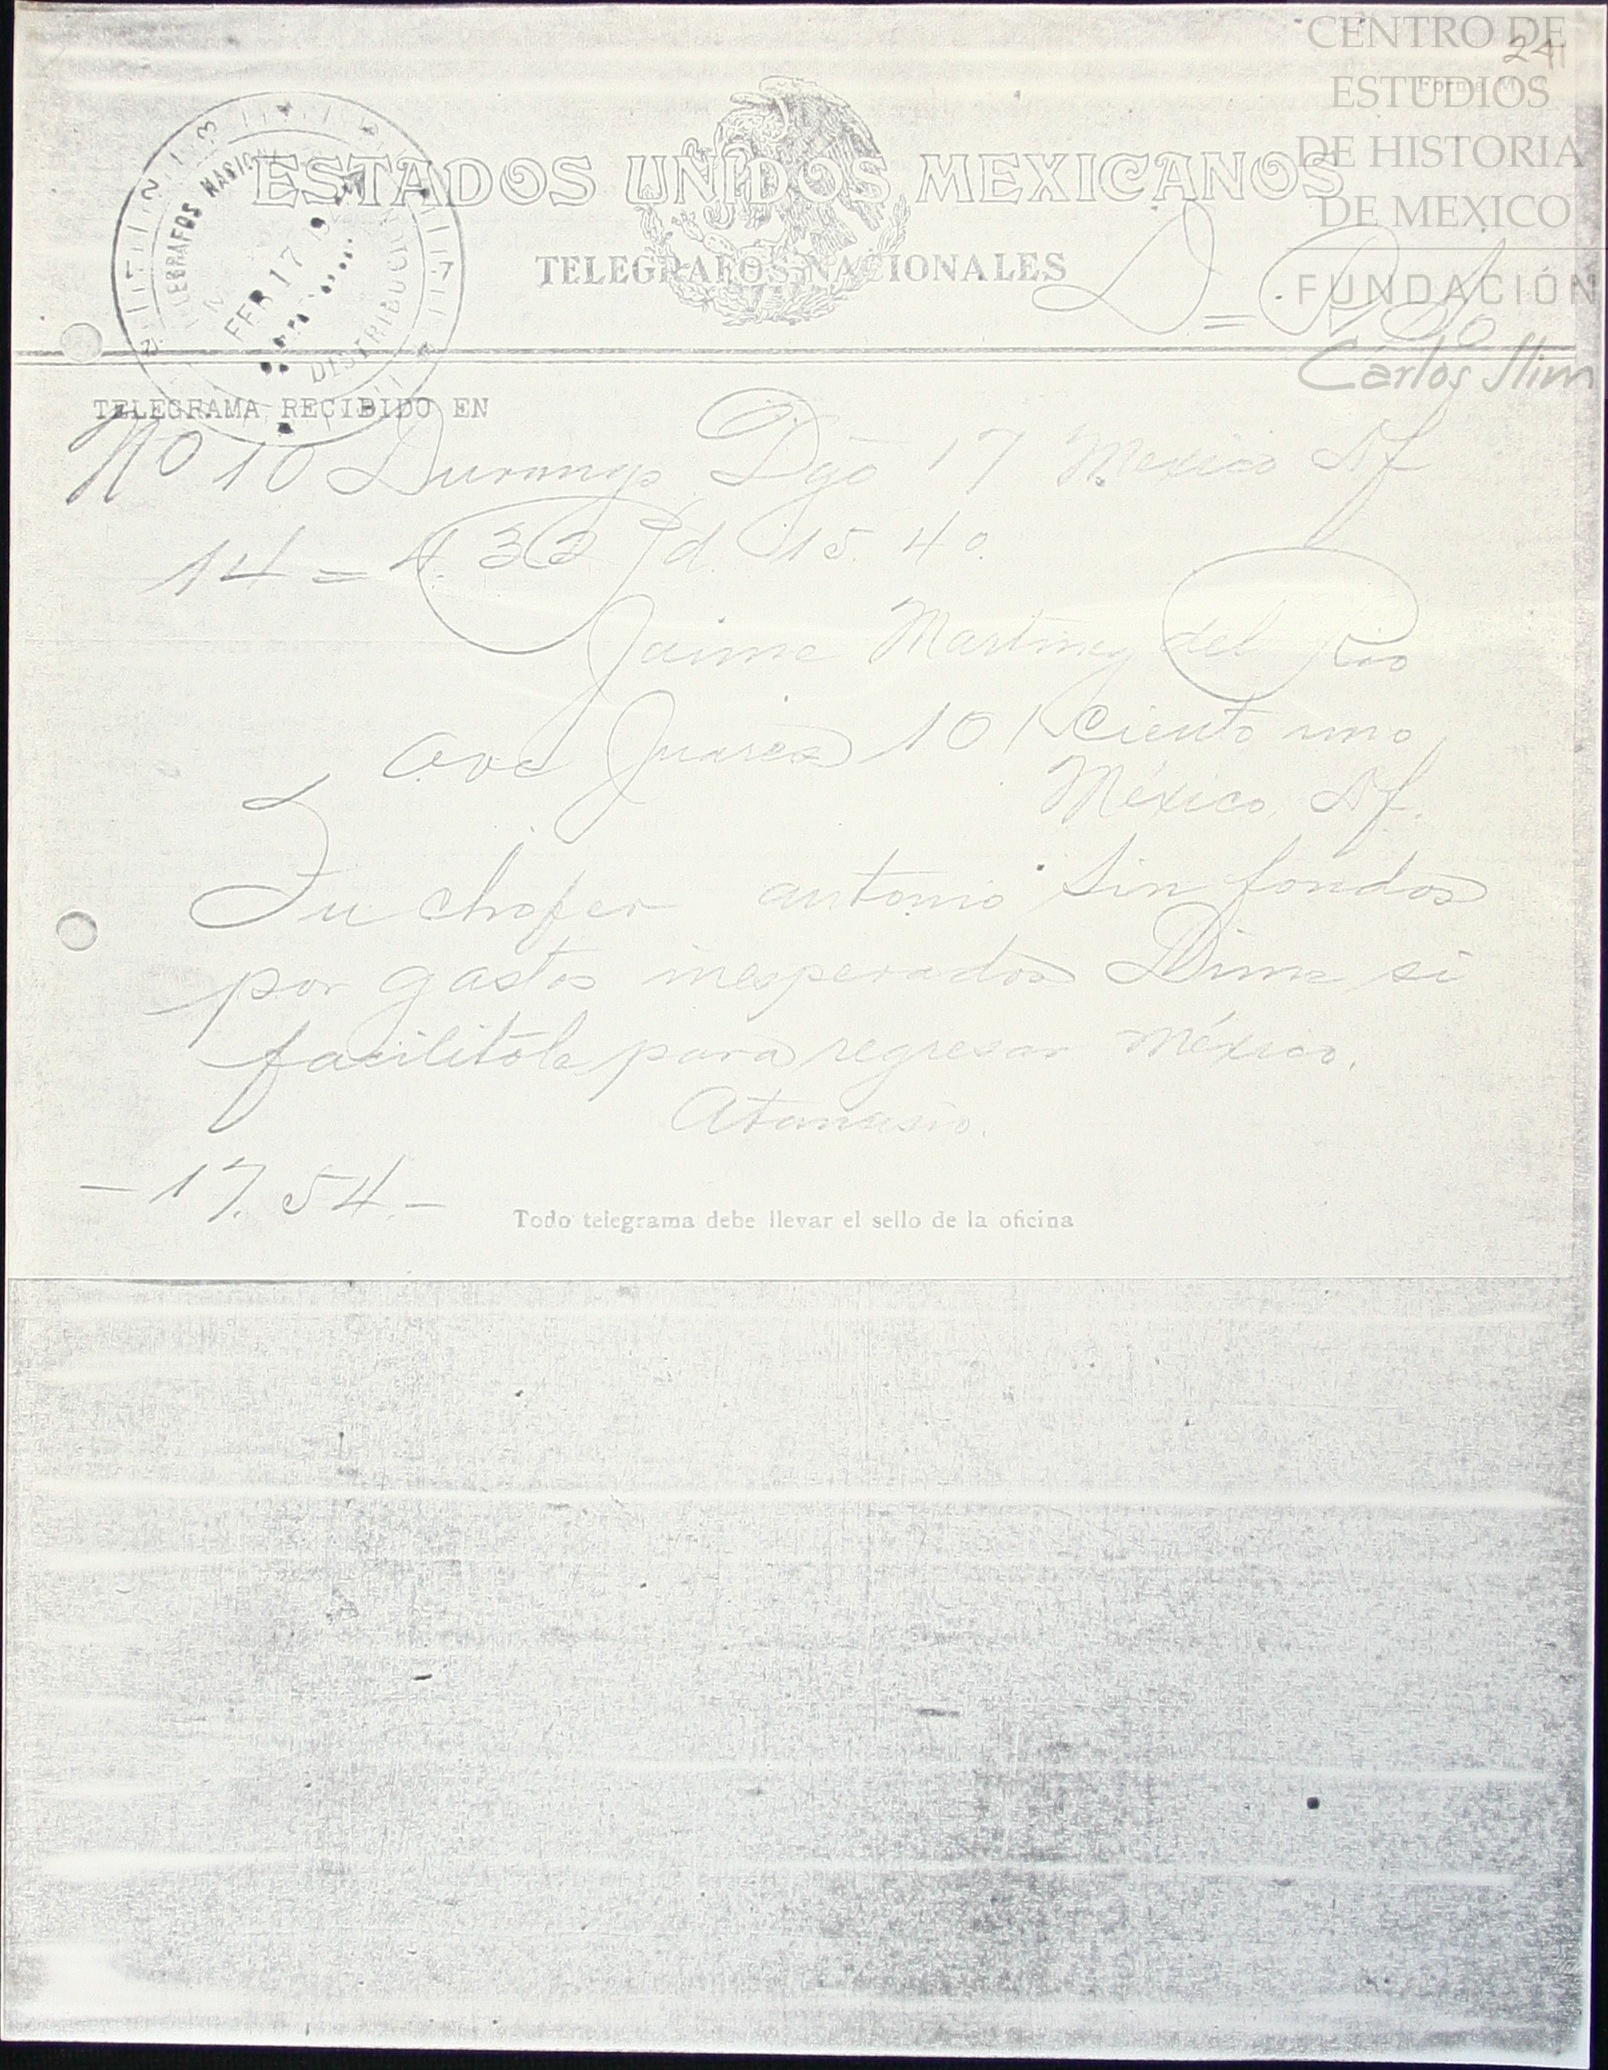 CENTRO DE
ESTUDIOS
DE HISTORIA
DE MEXICO
FUNDACIÓN
Carlos Slim
241
Forma M
ESTADOS UNIDOS MEXICANOS
TELEGRAFOS NACIONALES
TELEGRAFOS NACION
FEB 17
DISTRIBUC
TELEGRAMA RECIBIDO EN
No 10 Durango Dgo 17 Mexico Df
14 = 32 d. 15.40.
Jaime Martinez del Rio
Ave Juarez 101 ciento uno
México, Df.
Tu chofer antonio sin fondos
por gastos inesperados Dime si
facilitole para regresar México.
Atanasio.
- 17.54 -
Todo telegrama debe llevar el sello de la oficina